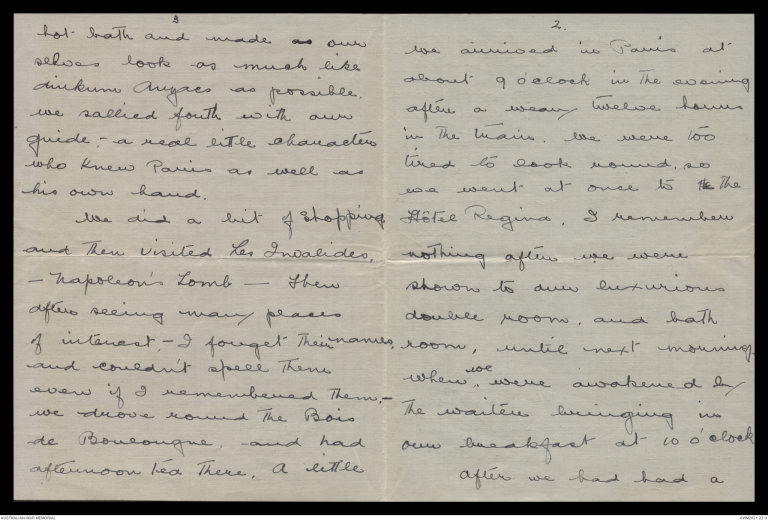 2.
we arrived in Paris at
about 9 o'clock in the evening
after a weary twelve hours
in the train. We were too
tired to look round, so
we went at once to the
Hôtel Regina. I remember
nothing after we were
shown to our luxurious
double room, and bath
room, until next morning,
when we were awakened by
the waiter bringing in
our breakfast at 10 o'clock
After we had had a
3
hot bath and made our
selves look as much like
dinkum Anzacs as possible.
we sallied forth with our
guide - a real little character
who knew Paris as well as
his own hand.
We did a bit of shopping
and then visited Les Invalides,
- Napoleon's Tomb - Then
after seeing many places
of interest - I forget their names,
and couldn't spell them
even if I remembered them, -
we drove round the Bois
de Boulougne, and had
afternoon tea there. A little
AUSTRALIAN WAR MEMORIAL